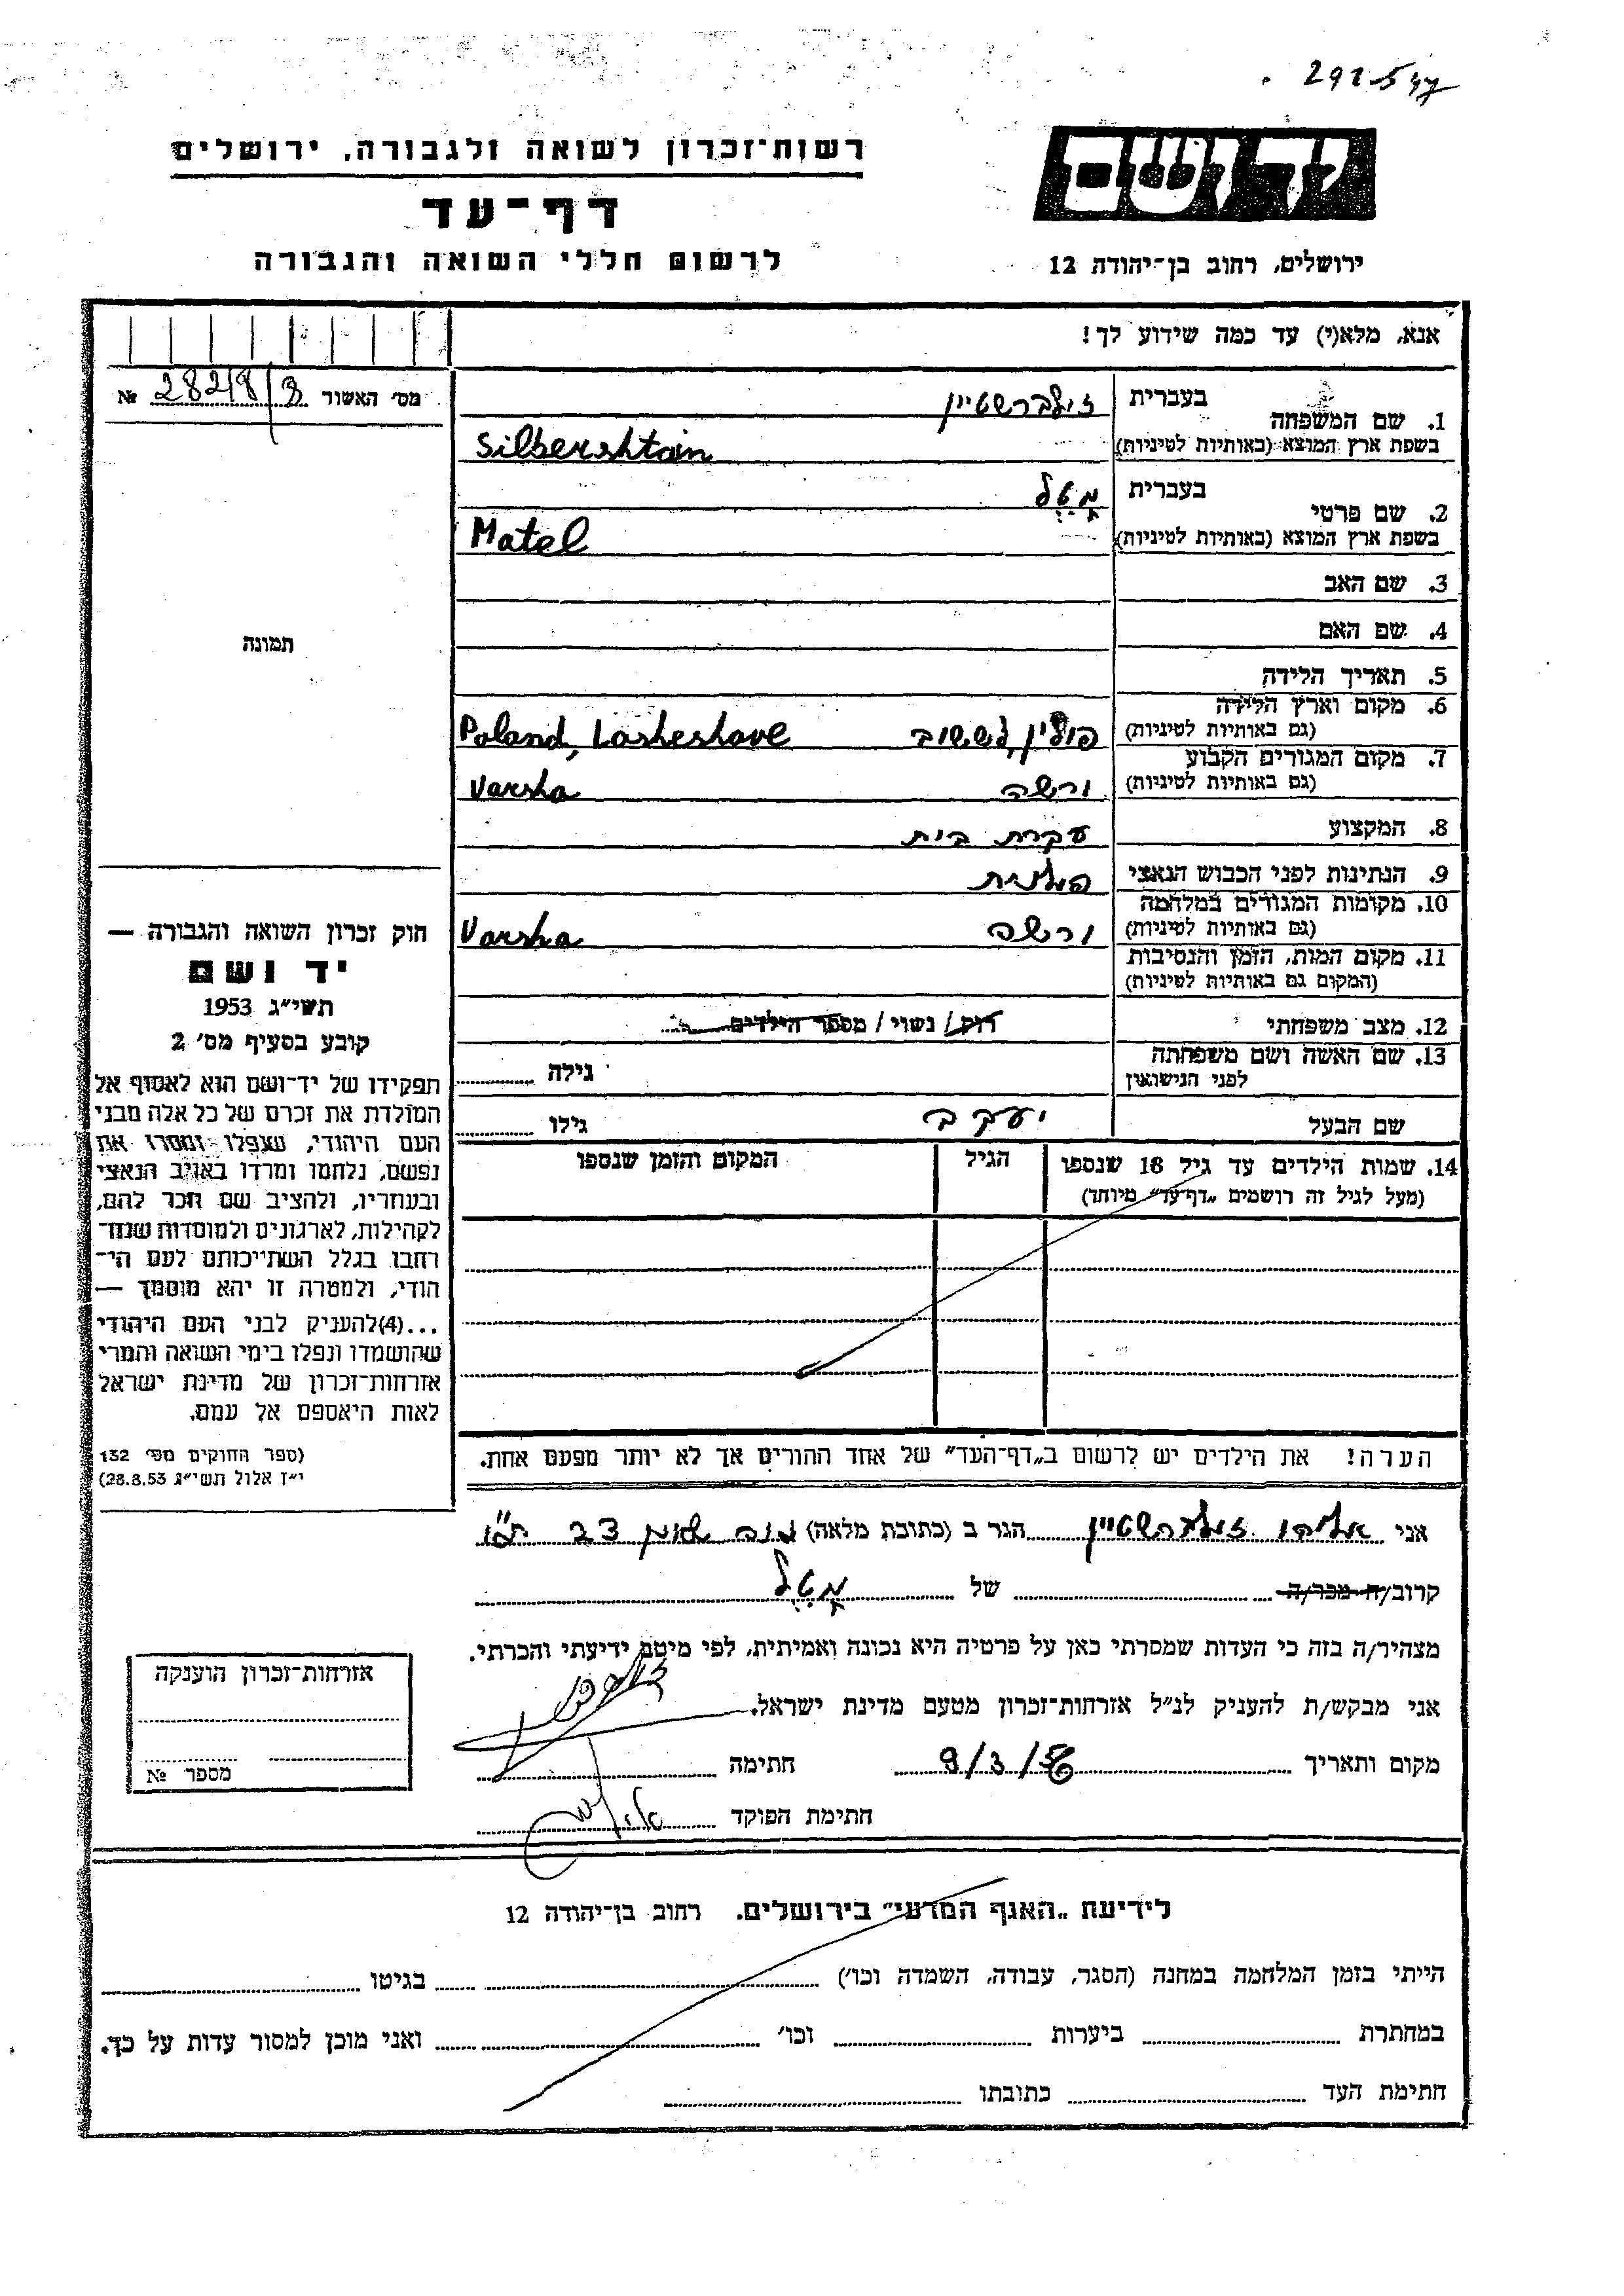 רשות־זכרון לשואה ולגבורה, ירושלים
דף־עד
לרשום חללי השואה והגבורה
יד ושם
ירושלים, רחוב בן־יהודה 12
אנא, מלא(י) עד כמה שידוע לך!
מס׳ האשור 282/8/3 №
1. שם המשפחה בעברית זילברשטיין
בשפת ארץ המוצא (באותיות לטיניות) Silbershtain
2. שם פרטי בעברית מטל
בשפת ארץ המוצא (באותיות לטיניות) Matel
3. שם האב
4. שם האם
5. תאריך הלידה
6. מקום וארץ הלידה
(גם באותיות לטיניות) פולין, לששוב Poland, Lasheshove
7. מקום המגורים הקבוע
(גם באותיות לטיניות) ורשה Varsha
8. המקצוע עקרת בית
9. הנתינות לפני הכבוש הנאצי פולנית
10. מקומות המגורים במלחמה
(גם באותיות לטיניות) ורשה Varsha
11. מקום המות, הזמן והנסיבות
(המקום גם באותיות לטיניות)
12. מצב משפחתי רוק / נשוי / מספר הילדים
13. שם האשה ושם משפחתה
לפני הנישואין גילה
שם הבעל יעקב גילו
14. שמות הילדים עד גיל 18 שנספו הגיל המקום והזמן שנספו
(מעל לגיל זה רושמים „דף־עד״ מיוחד)
הערה! את הילדים יש לרשום ב„דף־העד״ של אחד ההורים אך לא יותר מפעם אחת.
תמונה
חוק זכרון השואה והגבורה —
יד ושם
תשי״ג 1953
קובע בסעיף מס׳ 2
תפקידו של יד־ושם הוא לאסוף אל
המולדת את זכרם של כל אלה מבני
העם היהודי, שנפלו ומסרו את
נפשם, נלחמו ומרדו באויב הנאצי
ובעוזריו, ולהציב שם וזכר להם,
לקהילות, לארגונים ולמוסדות שנח־
רחבו בגלל השתייכותם לעם הי־
הודי, ולמטרה זו יהא מוסמך —
...(4)להעניק לבני העם היהודי
שהושמדו ונפלו בימי השואה והמרי
אזרחות־זכרון של מדינת ישראל
לאות היאספם אל עמם.
(ספר החוקים מס׳ 132
י״ז אלול תשי״ג 28.8.53)
אני אליהו זילברשטיין הגר ב (כתובת מלאה) נוה שאנן
קרוב/ה מכר/ה של מטל
מצהיר/ה בזה כי העדות שמסרתי כאן על פרטיה היא נכונה ואמיתית, לפי מיטב ידיעתי והכרתי.
אני מבקש/ת להעניק לנ״ל אזרחות־זכרון מטעם מדינת ישראל.
מקום ותאריך 9/3/56 חתימה
חתימת הפוקד
אזרחות־זכרון הוענקה
מספר №
לידיעת „האגף המדעי״ בירושלים. רחוב בן־יהודה 12
הייתי בזמן המלחמה במחנה (הסגר, עבודה, השמדה וכו׳) בגיטו
במחתרת ביערות וכו׳ ואני מוכן למסור עדות על כך.
חתימת העד כתובתו